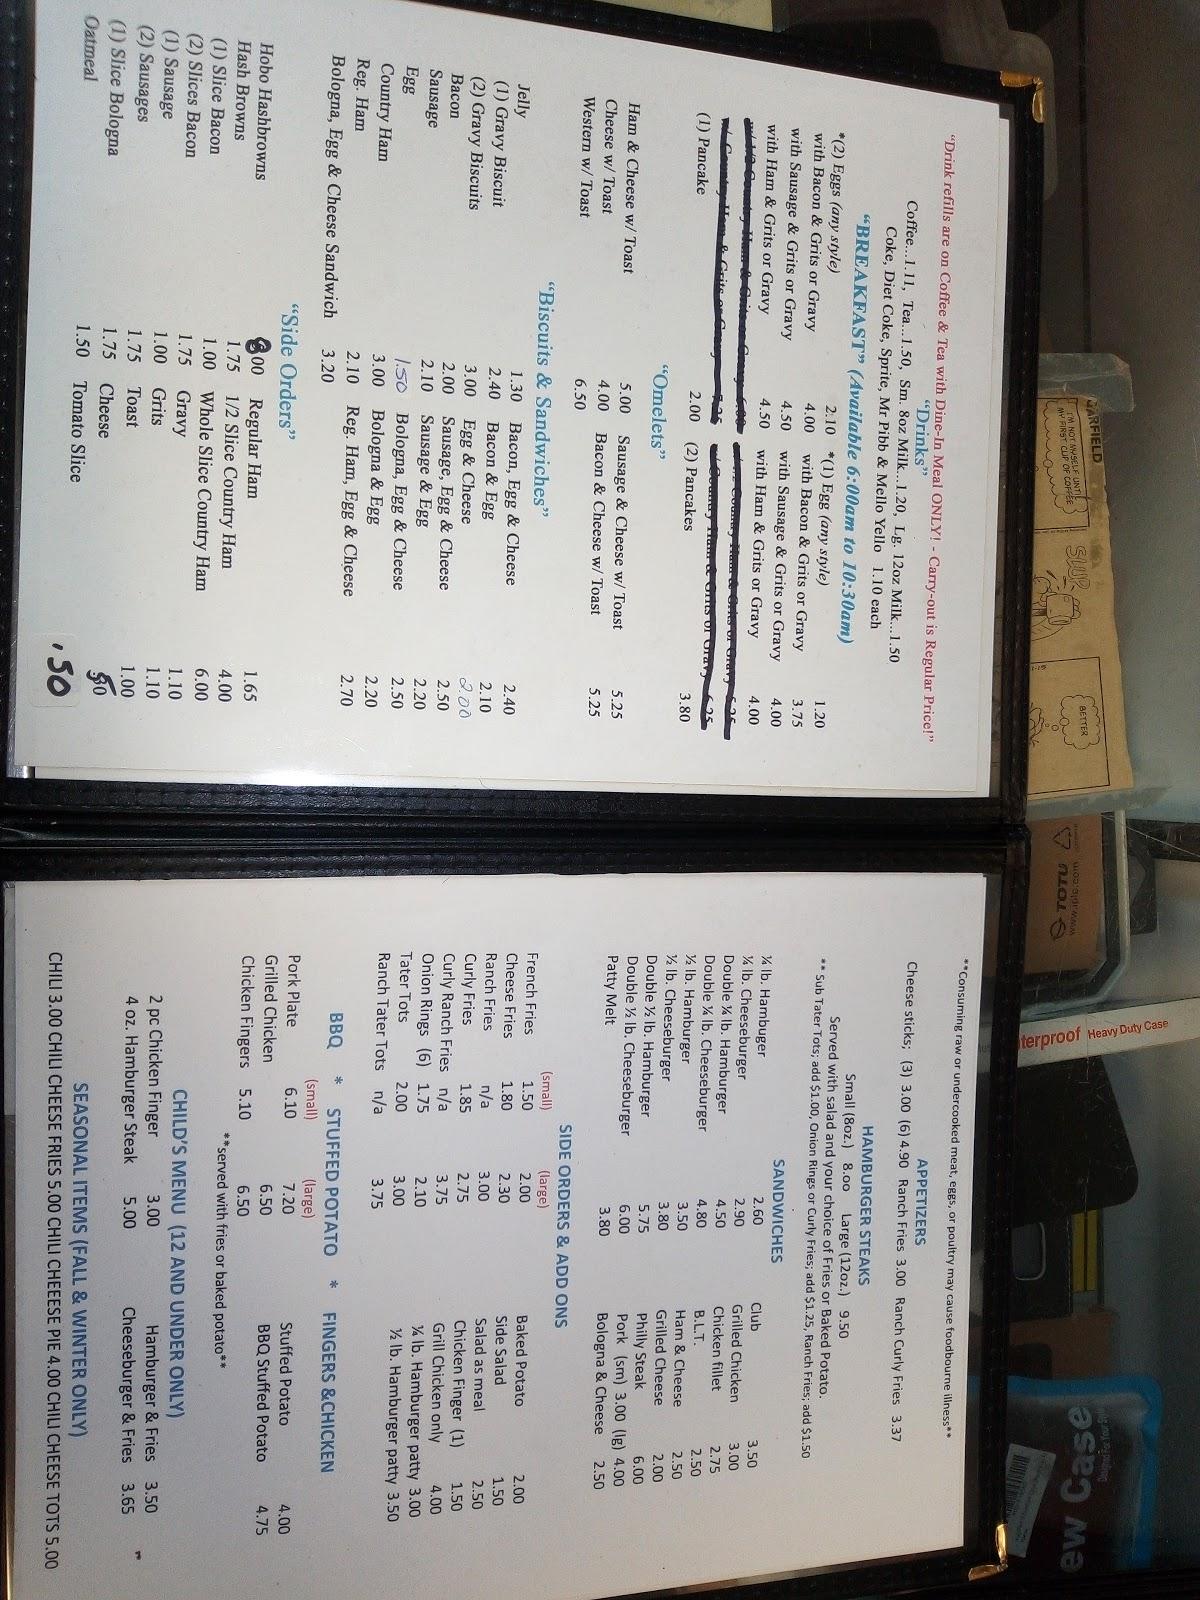 "Drink refills are on Coffee & Tea with Dine-In Meal ONLY! - Carry-out is Regular Price!"
"Drinks"
Coffee...1.11, Tea...1.50, Sm. 8oz Milk...1.20, Lg. 12oz Milk...1.50
Coke, Diet Coke, Sprite, Mr Pibb & Mello Yello 1.10 each
"BREAKFAST" (Available 6:00am to 10:30am)
*(2) Eggs (any style) 2.10 *(1) Egg (any style) 1.20
with Bacon & Grits or Gravy 4.00 with Bacon & Grits or Gravy 3.75
with Sausage & Grits or Gravy 4.50 with Sausage & Grits or Gravy 4.00
with Ham & Grits or Gravy 4.50 with Ham & Grits or Gravy 4.00
(1) Pancake 2.00 (2) Pancakes 3.80
"Omelets"
Ham & Cheese w/ Toast 5.00 Sausage & Cheese w/ Toast 5.25
Cheese w/ Toast 4.00 Bacon & Cheese w/ Toast 5.25
Western w/ Toast 6.50
"Biscuits & Sandwiches"
Jelly 1.30 Bacon, Egg & Cheese 2.40
(1) Gravy Biscuit 2.40 Bacon & Egg 2.10
(2) Gravy Biscuits 3.00 Egg & Cheese 2.00
Bacon 2.00 Sausage, Egg & Cheese 2.50
Sausage 2.10 Sausage & Egg 2.20
Egg 1.50 Bologna, Egg & Cheese 2.50
Country Ham 3.00 Bologna & Egg 2.20
Reg. Ham 2.10 Reg. Ham, Egg & Cheese 2.70
Bologna, Egg & Cheese Sandwich 3.20
"Side Orders"
Hobo Hashbrowns 3.00 Regular Ham 1.65
Hash Browns 1.75 1/2 Slice Country Ham 4.00
(1) Slice Bacon 1.00 Whole Slice Country Ham 6.00
(2) Slices Bacon 1.75 Gravy 1.10
(1) Sausage 1.00 Grits 1.10
(2) Sausages 1.75 Toast 1.00
(1) Slice Bologna 1.75 Cheese .50
Oatmeal 1.50 Tomato Slice .50
**Consuming raw or undercooked meat, eggs, or poultry may cause foodbourne illness**
APPETIZERS
Cheese sticks; (3) 3.00 (6) 4.90 Ranch Fries 3.00 Ranch Curly Fries 3.37
HAMBURGER STEAKS
Small (8oz.) 8.00 Large (12oz.) 9.50
Served with salad and your choice of Fries or Baked Potato.
** Sub Tater Tots; add $1.00, Onion Rings or Curly Fries; add $1.25, Ranch Fries; add $1.50
SANDWICHES
¼ lb. Hambuger 2.60 Club 3.50
¼ lb. Cheeseburger 2.90 Grilled Chicken 3.00
Double ¼ lb. Hamburger 4.50 Chicken fillet 2.75
Double ¼ lb. Cheeseburger 4.80 B.L.T. 2.50
½ lb. Hamburger 3.50 Ham & Cheese 2.50
½ lb. Cheeseburger 3.80 Grilled Cheese 2.00
Double ½ lb. Hamburger 5.75 Philly Steak 6.00
Double ½ lb. Cheeseburger 6.00 Pork (sm) 3.00 (lg) 4.00
Patty Melt 3.80 Bologna & Cheese 2.50
SIDE ORDERS & ADD ONS
(small) (large)
French Fries 1.50 2.00 Baked Potato 2.00
Cheese Fries 1.80 2.30 Side Salad 1.50
Ranch Fries n/a 3.00 Salad as meal 2.50
Curly Fries 1.85 2.75 Chicken Finger (1) 1.50
Curly Ranch Fries n/a 3.75 Grill Chicken only 4.00
Onion Rings (6) 1.75 2.10 ¼ lb. Hamburger patty 3.00
Tater Tots 2.00 3.00 ½ lb. Hamburger patty 3.50
Ranch Tater Tots n/a 3.75
BBQ * STUFFED POTATO * FINGERS &CHICKEN
(small) (large)
Pork Plate 6.10 7.20 Stuffed Potato 4.00
Grilled Chicken 6.50 BBQ Stuffed Potato 4.75
Chicken Fingers 5.10 6.50
**served with fries or baked potato**
CHILD'S MENU (12 AND UNDER ONLY)
2 pc Chicken Finger 3.00 Hamburger & Fries 3.50
4 oz. Hamburger Steak 5.00 Cheeseburger & Fries 3.65
SEASONAL ITEMS (FALL & WINTER ONLY)
CHILI 3.00 CHILI CHEESE FRIES 5.00 CHILI CHEEESE PIE 4.00 CHILI CHEESE TOTS 5.00
GARFIELD
I'M NOT MYSELF UNTIL
MY FIRST CUP OF COFFEE
SLURP
BETTER
terproof Heavy Duty Case
Case